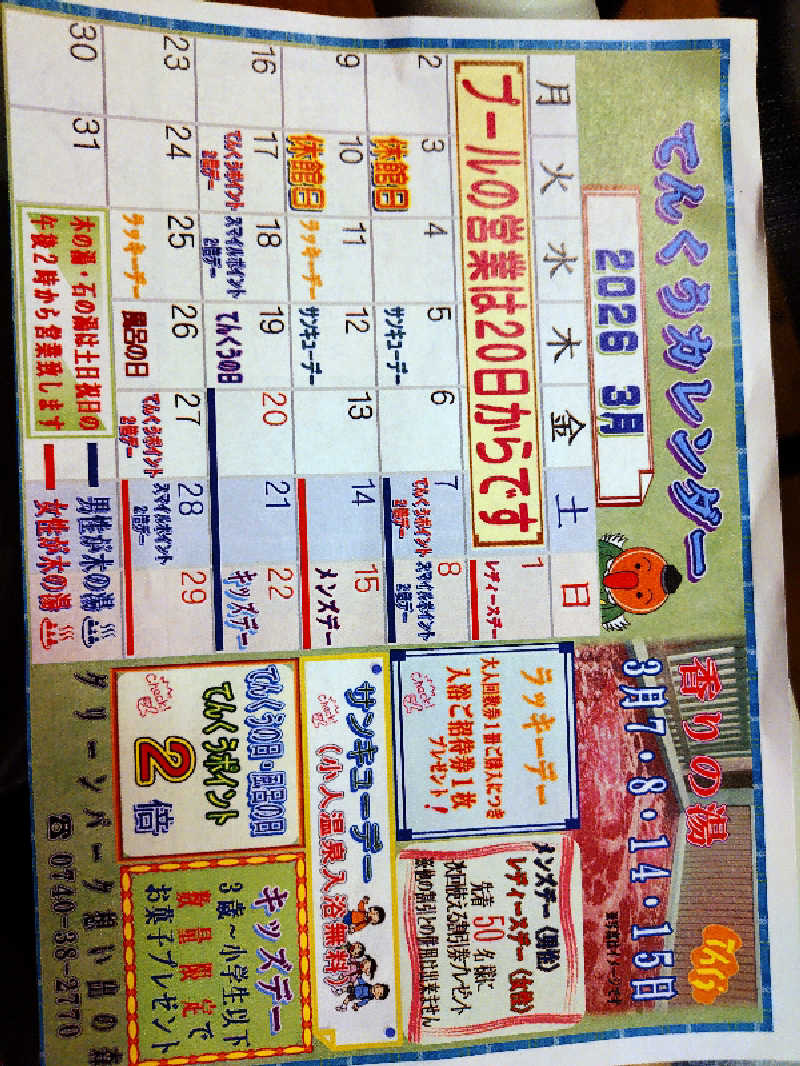 てんくうカレンダー
2026 3月
月 火 水 木 金 土 日
プールの営業は20日からです
1
レディースデー
2 3 4 5 6 7 8
休館日
サンキューデー
てんくうポイント
2倍デー
スマイルポイント
2倍デー
9 10 11 12 13 14 15
休館日
ラッキーデー
サンキューデー
メンズデー
16 17 18 19 20 21 22
てんくうポイント
2倍デー
スマイルポイント
2倍デー
てんくうの日
キッズデー
23 24 25 26 27 28 29
ラッキーデー
風呂の日
てんくうポイント
2倍デー
スマイルポイント
2倍デー
30 31
木の湯・石の湯は土日祝日の
午後2時から営業致します
男性が木の湯
女性が木の湯
香りの湯
3月7・8・14・15日
ラッキーデー
大人回数券1冊ご購入につき
入浴ご招待券1枚
プレゼント!
メンズデー(男性)
レディースデー(女性)
先着50名様に
次回使える割引券プレゼント
サンキューデー
(小人温泉入浴無料)
check!
てんくうの日・風呂の日
てんくうポイント
2倍
check!
キッズデー
3歳～小学生以下
数量限定で
お菓子プレゼント
グリーンパーク想い出の森
☎0740-38-2770